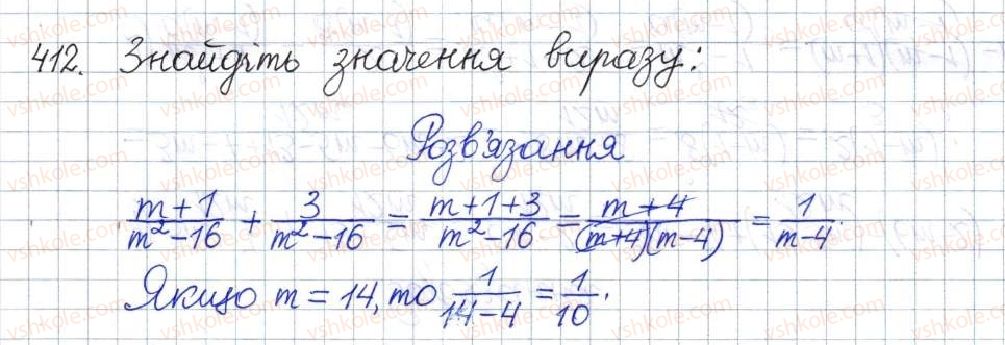 412. Знайдіть значення виразу:
Розв'язання
(m+1)/(m²-16) + 3/(m²-16) = (m+1+3)/(m²-16) = (m+4)/((m+4)(m-4)) = 1/(m-4).
Якщо m = 14, то 1/(14-4) = 1/10.